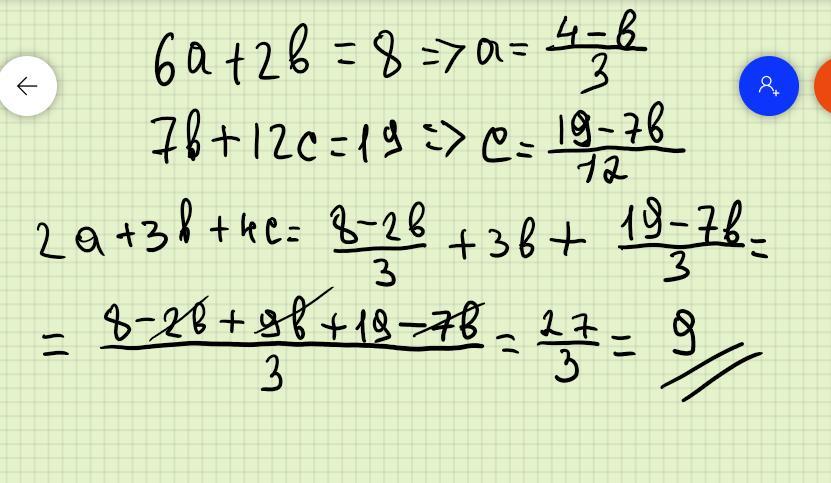 6a+2b=8 => a= (4-b)/3
7b+12c=19 => c= (19-7b)/12
2a+3b+4c= (8-2b)/3 +3b+ (19-7b)/3 =
= (8-2b+9b+19-7b)/3 = 27/3 = 9